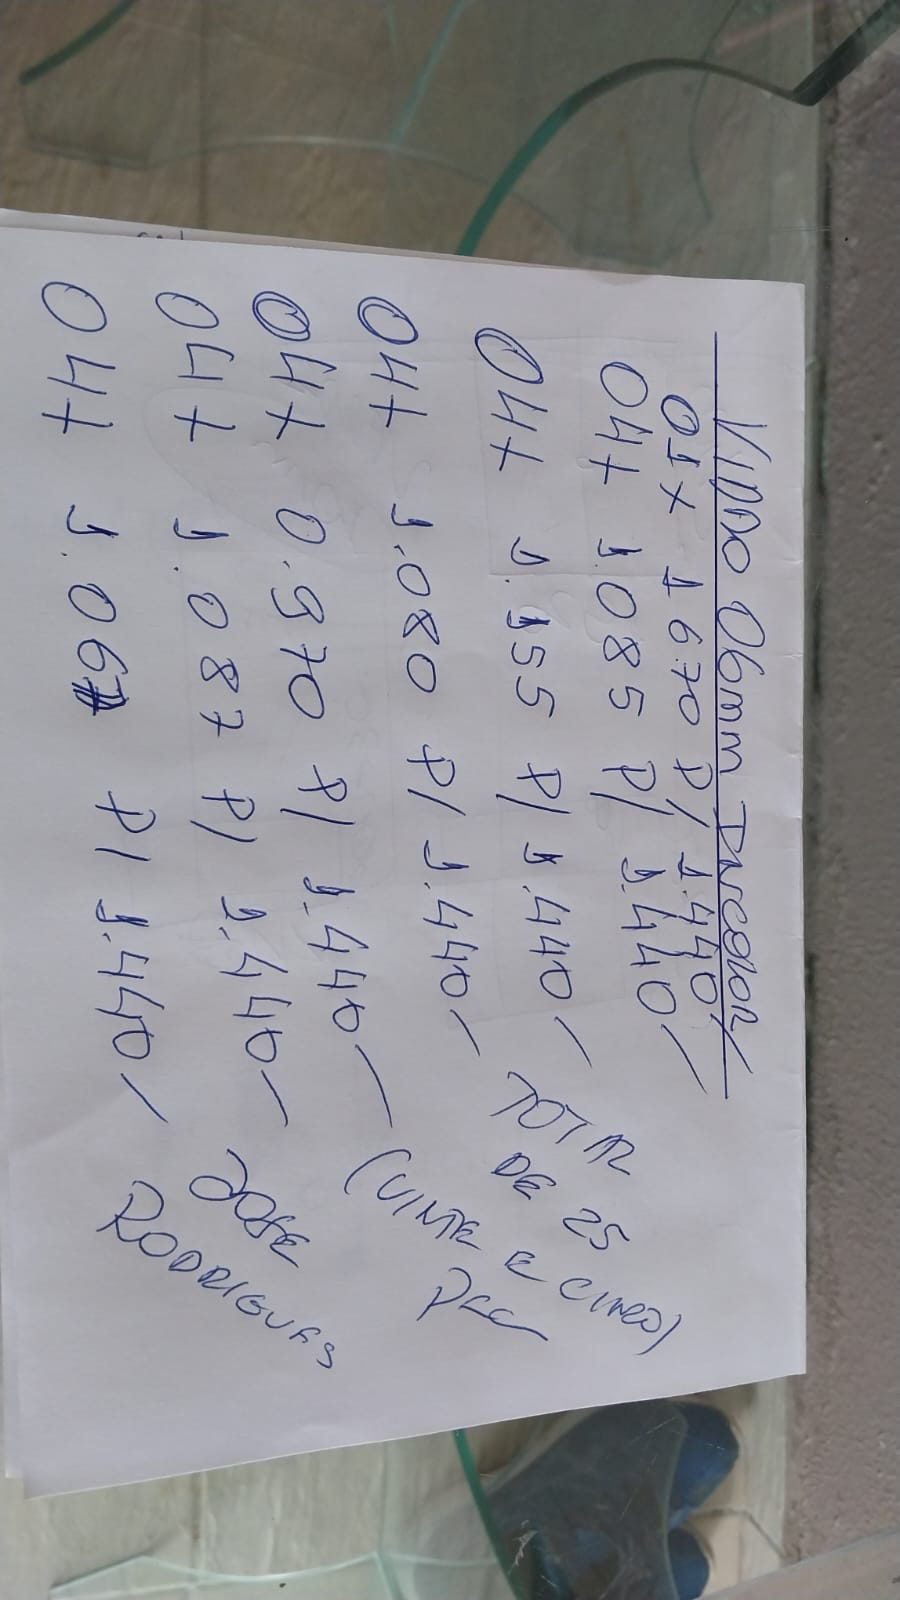 VIDRO 06mm INCOLOR
01x 1670 P/ 1.440/
04x 1.085 P/ 1.440/
04x 1.155 P/ 1.440/
04x 1.080 P/ 1.440/
04x 0.970 P/ 1.440/
04x 1.087 P/ 1.440/
04x 1.067 P/ 1.440/
TOTAL
DE 25
(VINTE E CINCO)
JOSE
RODRIGUES